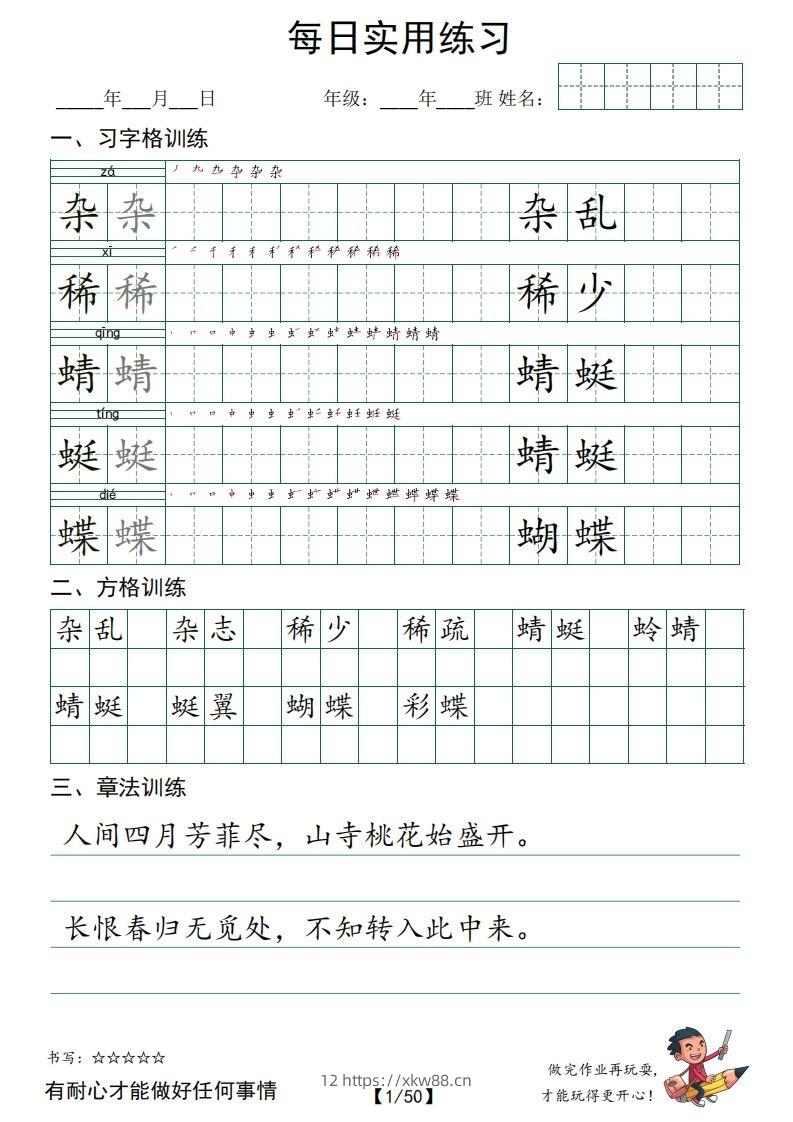 每日实用练习
_____年___月___日 年级：____年____班 姓名：
一、习字格训练
zá
杂 杂 杂 乱
xī
稀 稀 稀 少
qīng
蜻 蜻 蜻 蜓
tíng
蜓 蜓 蜻 蜓
dié
蝶 蝶 蝴 蝶
二、方格训练
杂乱 杂志 稀少 稀疏 蜻蜓 蛉蜻
蜻蜓 蜓翼 蝴蝶 彩蝶
三、章法训练
人间四月芳菲尽，山寺桃花始盛开。
长恨春归无觅处，不知转入此中来。
书写：☆☆☆☆☆
有耐心才能做好任何事情
12 https://xkw88.cn
【1/50】
做完作业再玩耍，
才能玩得更开心！